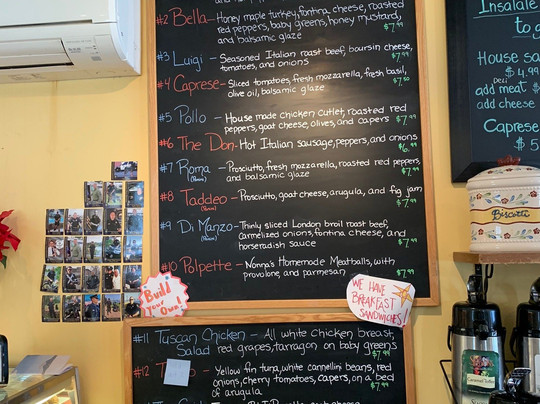 #2 Bella - Honey maple turkey, fontina cheese, roasted
red peppers, baby greens, honey mustard,
and balsamic glaze $7.99
#3 Luigi - Seasoned Italian roast beef, boursin cheese,
tomatoes, and onions $7.99
#4 Caprese - Sliced tomatoes, fresh mozzarella, fresh basil,
olive oil, balsamic glaze $7.50
#5 Pollo - House made chicken cutlet, roasted red
peppers, goat cheese, olives, and capers $7.99
#6 The Don - Hot Italian sausage, peppers, and onions
$6.99
#7 Roma - Prosciutto, fresh mozzarella, roasted red peppers,
and balsamic glaze $7.99
#8 Taddeo - Prosciutto, goat cheese, arugula, and fig jam
$7.99
#9 Di Manzo - Thinly sliced London broil roast beef,
carmelized onions, fontina cheese, and
horseradish sauce $7.99
#10 Polpette - Nonna's Homemade Meatballs, with
provolone, and parmesan $7.99
Build
Your
Own
WE HAVE
BREAKFAST
SANDWICHES!
#11 Tuscan Chicken - All white chicken breast,
Salad red grapes, tarragon on baby greens
$7.99
#12 Yellow fin tuna, white cannellini beans, red
onions, cherry tomatoes, capers, on a bed
of arugula $7.99
Insalate
to g
House sa
$4.99
Deli
add meat $
add cheese
Caprese
$5
Biscotti